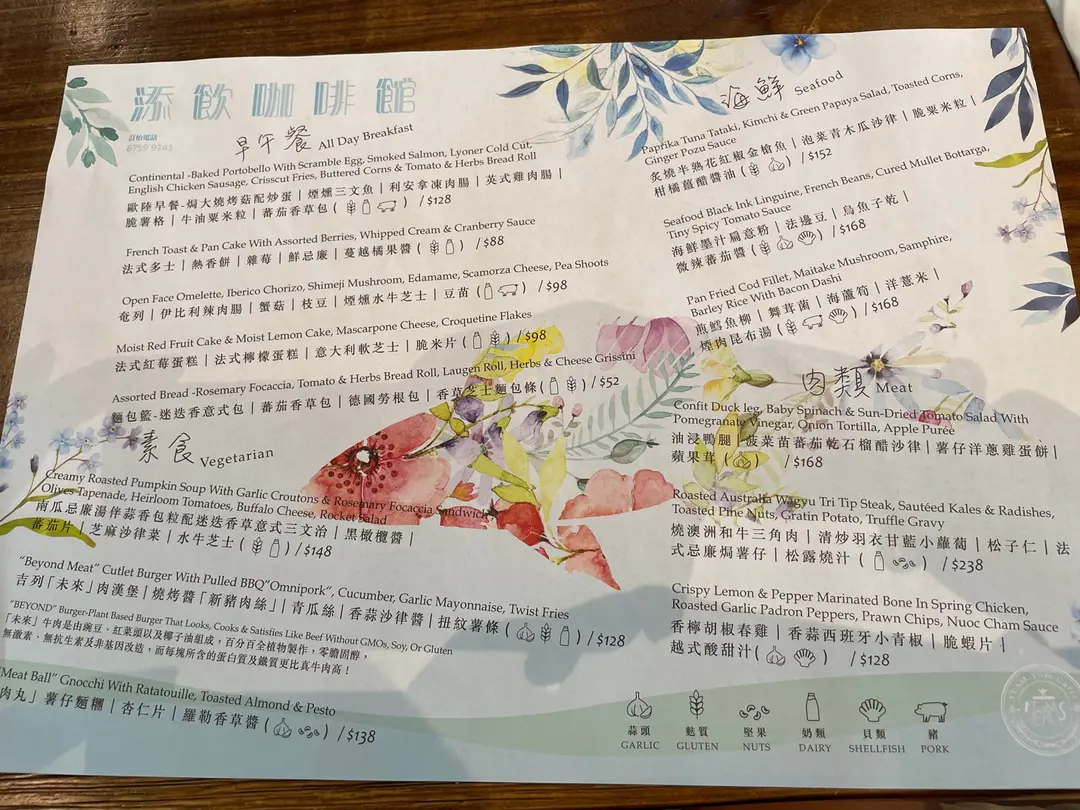 添飲咖啡館
訂枱電話
6759 9141
早午餐 All Day Breakfast
Continental -Baked Portobello With Scramble Egg, Smoked Salmon, Lyoner Cold Cut,
English Chicken Sausage, Crisscut Fries, Buttered Corns & Tomato & Herbs Bread Roll
歐陸早餐-焗大燒烤菇配炒蛋 | 煙燻三文魚 | 利安拿凍肉腸 | 英式雞肉腸 |
脆薯格 | 牛油粟米粒 | 蕃茄香草包 ( ) / $128
French Toast & Pan Cake With Assorted Berries, Whipped Cream & Cranberry Sauce
法式多士 | 熱香餅 | 雜莓 | 鮮忌廉 | 蔓越橘果醬 ( ) / $88
Open Face Omelette, Iberico Chorizo, Shimeji Mushroom, Edamame, Scamorza Cheese, Pea Shoots
奄列 | 伊比利辣肉腸 | 蟹菇 | 枝豆 | 煙燻水牛芝士 | 豆苗 ( ) / $98
Moist Red Fruit Cake & Moist Lemon Cake, Mascarpone Cheese, Croquetine Flakes
法式紅莓蛋糕 | 法式檸檬蛋糕 | 意大利軟芝士 | 脆米片 ( ) / $98
Assorted Bread -Rosemary Focaccia, Tomato & Herbs Bread Roll, Laugen Roll, Herbs & Cheese Grissini
麵包籃-迷迭香意式包 | 蕃茄香草包 | 德國勞根包 | 香草芝士麵包條 ( ) / $52
素食 Vegetarian
Creamy Roasted Pumpkin Soup With Garlic Croutons & Rosemary Focaccia Sandwich,
Olives Tapenade, Heirloom Tomatoes, Buffalo Cheese, Rocket Salad
南瓜忌廉湯伴蒜香包粒配迷迭香草意式三文治 | 黑橄欖醬 |
蕃茄片 | 芝麻沙律菜 | 水牛芝士 ( ) / $148
"Beyond Meat" Cutlet Burger With Pulled BBQ"Omnipork", Cucumber, Garlic Mayonnaise, Twist Fries
吉列「未來」肉漢堡 | 燒烤醬「新豬肉絲」 | 青瓜絲 | 香蒜沙律醬 | 扭紋薯條 ( ) / $128
"BEYOND" Burger-Plant Based Burger That Looks, Cooks & Satisfies Like Beef Without GMOs, Soy, Or Gluten
「未來」牛肉是由豌豆、紅菜頭以及椰子油組成，百分百全植物製作，零膽固醇，
無激素、無抗生素及非基因改造，而每塊所含的蛋白質及鐵質更比真牛肉高！
"Meat Ball" Gnocchi With Ratatouille, Toasted Almond & Pesto
肉丸」薯仔麵糰 | 杏仁片 | 羅勒香草醬 ( ) / $138
海鮮 Seafood
Paprika Tuna Tataki, Kimchi & Green Papaya Salad, Toasted Corns,
Ginger Pozu Sauce
炙燒半熟花紅椒金槍魚 | 泡菜青木瓜沙律 | 脆粟米粒 |
柑橘薑醋醬油 ( ) / $152
Seafood Black Ink Linguine, French Beans, Cured Mullet Bottarga,
Tiny Spicy Tomato Sauce
海鮮墨汁扁意粉 | 法邊豆 | 烏魚子乾 |
微辣蕃茄醬 ( ) / $168
Pan Fried Cod Fillet, Maitake Mushroom, Samphire,
Barley Rice With Bacon Dashi
煎鱈魚柳 | 舞茸菌 | 海蘆筍 | 洋薏米 |
煙肉昆布湯 ( ) / $168
肉類 Meat
Confit Duck leg, Baby Spinach & Sun-Dried Tomato Salad With
Pomegranate Vinegar, Onion Tortilla, Apple Purée
油浸鴨腿 | 菠菜苗蕃茄乾石榴醋沙律 | 薯仔洋蔥雞蛋餅 |
蘋果茸 ( ) / $168
Roasted Australia Wagyu Tri Tip Steak, Sautéed Kales & Radishes,
Toasted Pine Nuts, Gratin Potato, Truffle Gravy
燒澳洲和牛三角肉 | 清炒羽衣甘藍小蘿蔔 | 松子仁 | 法
式忌廉焗薯仔 | 松露燒汁 ( ) / $238
Crispy Lemon & Pepper Marinated Bone In Spring Chicken,
Roasted Garlic Padron Peppers, Prawn Chips, Nuoc Cham Sauce
香檸胡椒春雞 | 香蒜西班牙小青椒 | 脆蝦片 |
越式酸甜汁 ( ) / $128
蒜頭 麩質 堅果 奶類 貝類 豬
GARLIC GLUTEN NUTS DAIRY SHELLFISH PORK